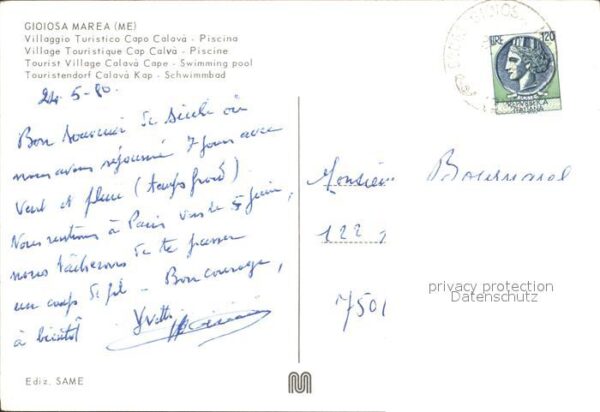 GIOIOSA MAREA (ME)
Villaggio Turistico Capo Calavà - Piscina
Village Touristique Cap Calvà - Piscine
Tourist Village Calavà Cape - Swimming pool
Touristendorf Calavà Kap - Schwimmbad
24-5-80
Bon souvenir de Sicile où
nous avons séjourné 7 jours avec
vent et pluie (temps froid)
Nous rentrons à Paris vers le 5 juin,
nous tâcherons de te passer
un coup de fil - Bon courage,
à bientôt Yvette
Monsieur Bournard
122,
7501
LIRE 120
REPUBBLICA
ITALIANA
privacy protection
Datenschutz
Ediz. SAME